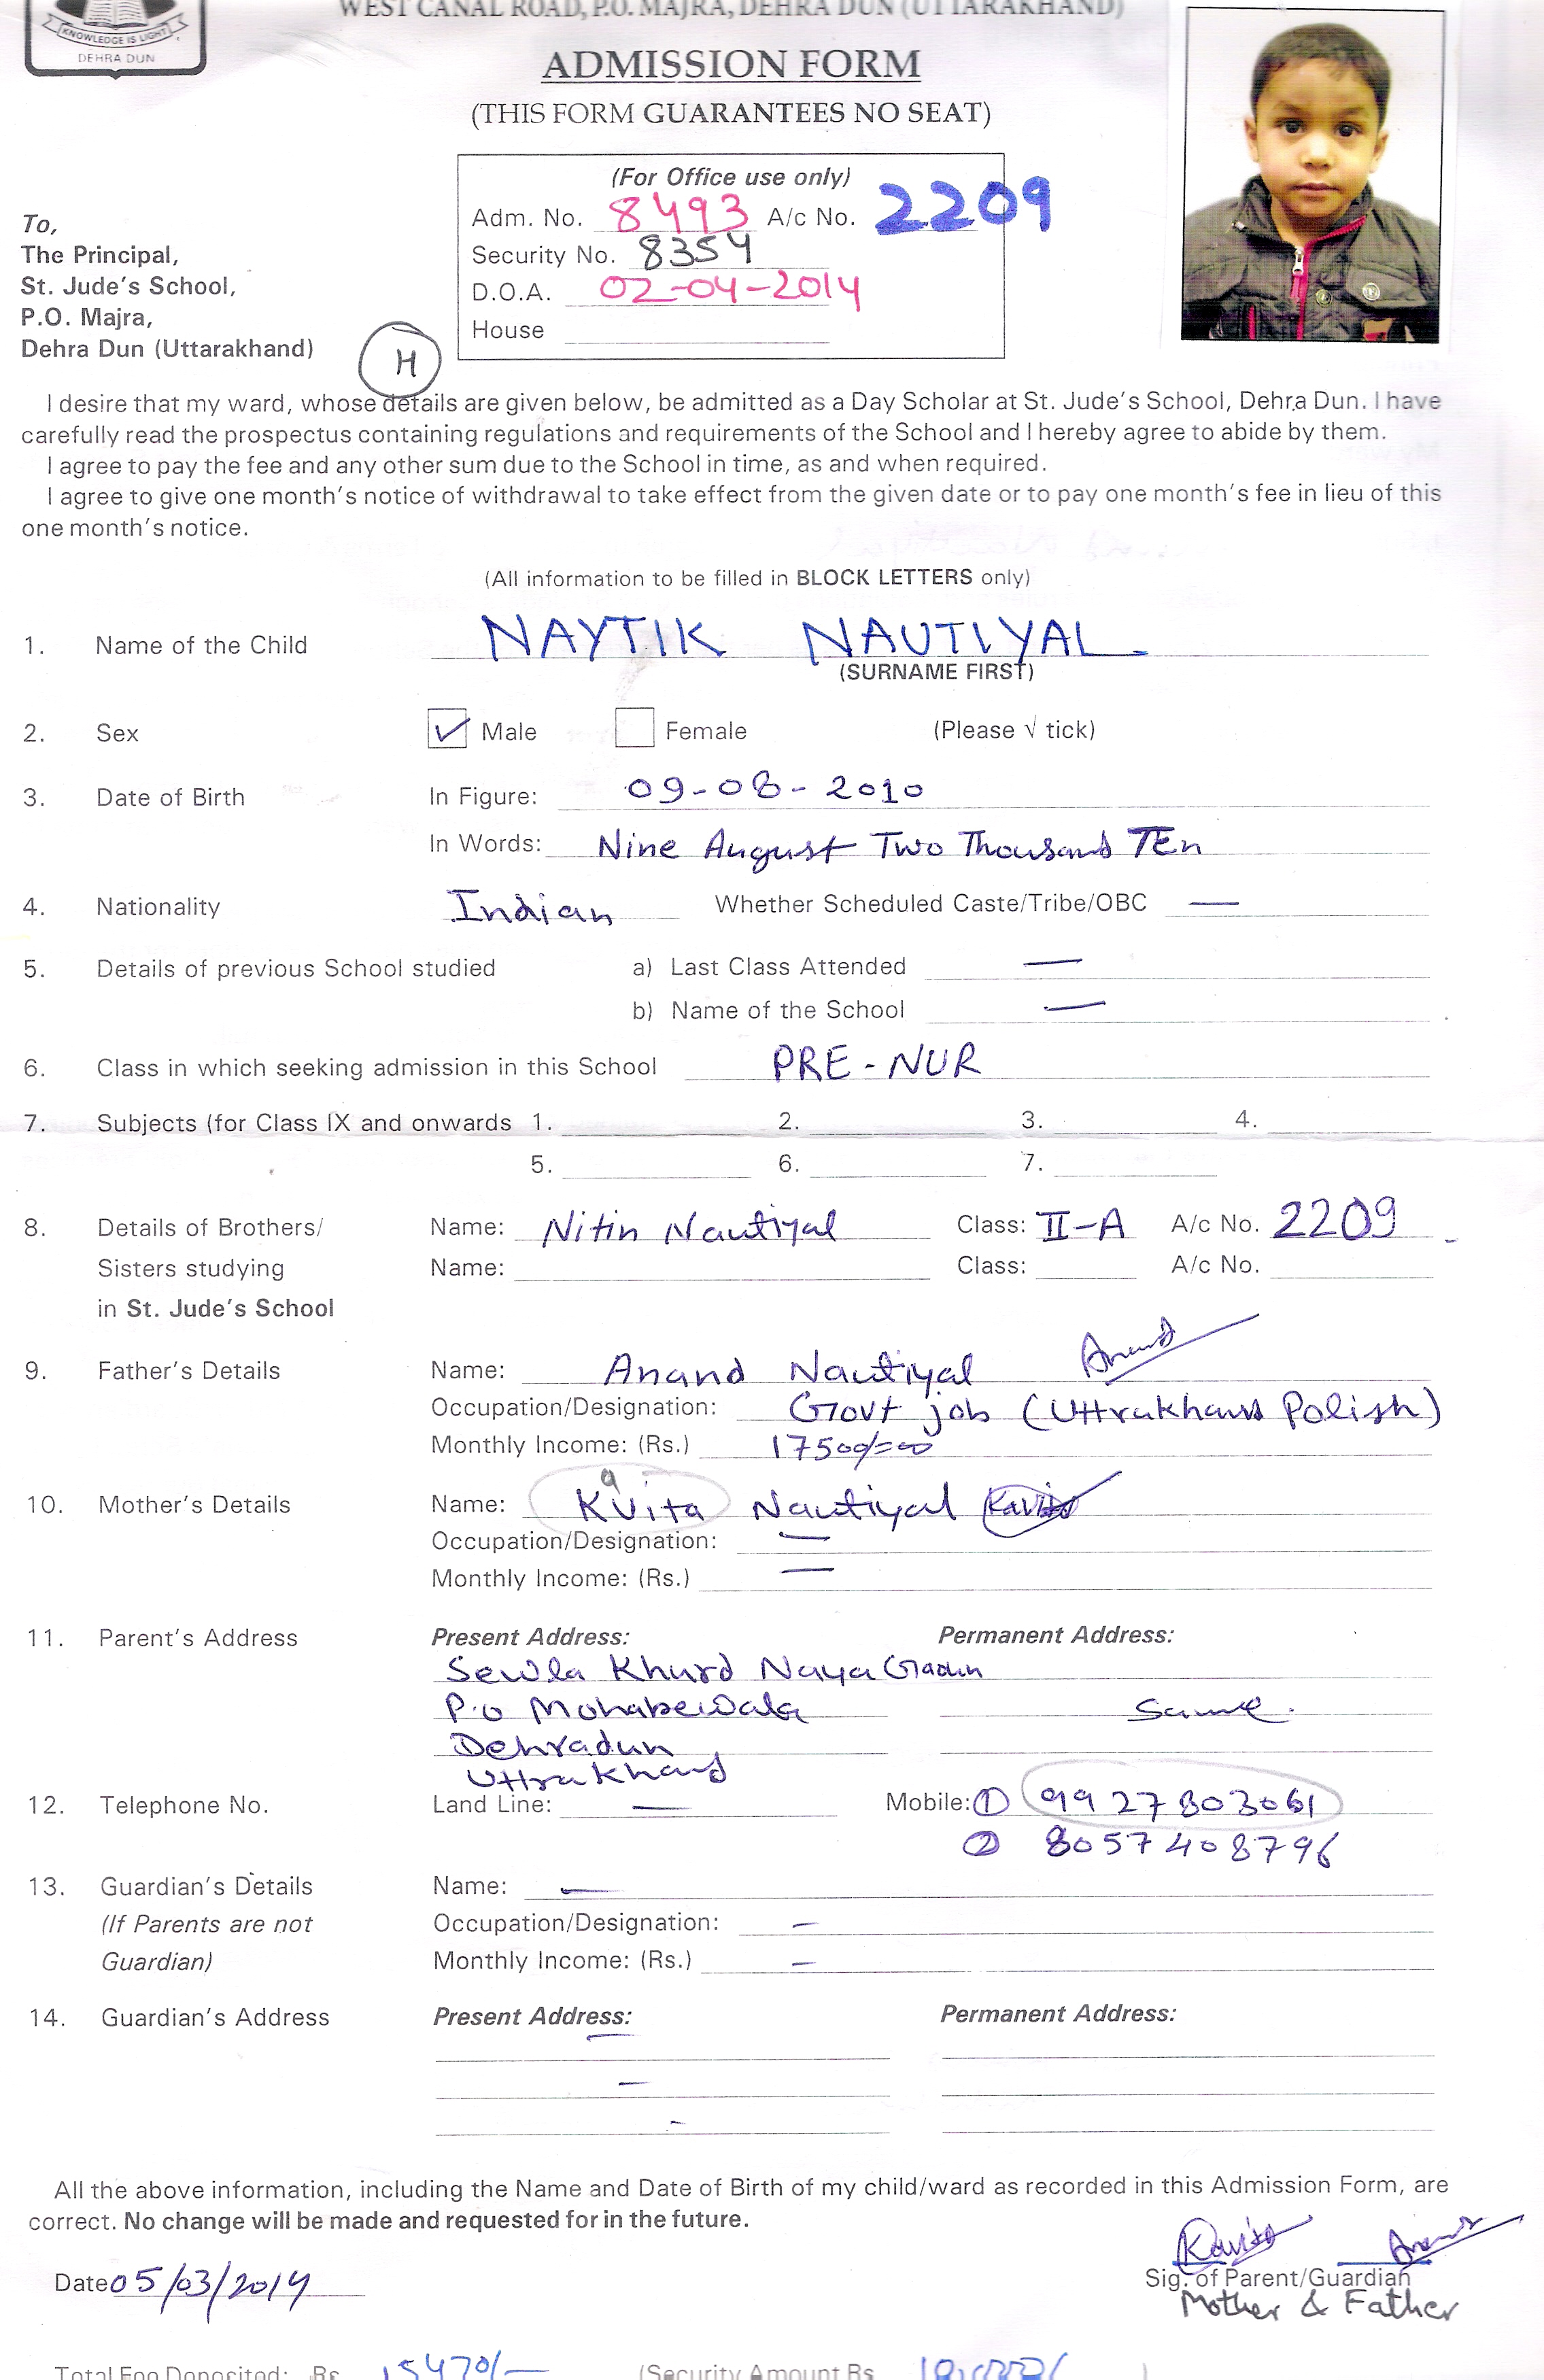 WEST CANAL ROAD, P.O. MAJRA, DEHRA DUN (UTTARAKHAND)
KNOWLEDGE IS LIGHT
DEHRA DUN
ADMISSION FORM
(THIS FORM GUARANTEES NO SEAT)
(For Office use only)
Adm. No. 8493 A/c No. 2209
Security No. 8354
D.O.A. 02-04-2014
House
To,
The Principal,
St. Jude's School,
P.O. Majra,
Dehra Dun (Uttarakhand)
H
I desire that my ward, whose details are given below, be admitted as a Day Scholar at St. Jude's School, Dehra Dun. I have
carefully read the prospectus containing regulations and requirements of the School and I hereby agree to abide by them.
I agree to pay the fee and any other sum due to the School in time, as and when required.
I agree to give one month's notice of withdrawal to take effect from the given date or to pay one month's fee in lieu of this
one month's notice.
(All information to be filled in BLOCK LETTERS only)
1. Name of the Child NAYTIK NAUTIYAL
(SURNAME FIRST)
2. Sex ✓ Male Female (Please √ tick)
3. Date of Birth In Figure: 09-08-2010
In Words: Nine August Two Thousand TEn
4. Nationality Indian Whether Scheduled Caste/Tribe/OBC —
5. Details of previous School studied a) Last Class Attended —
b) Name of the School —
6. Class in which seeking admission in this School PRE-NUR
7. Subjects (for Class IX and onwards 1. 2. 3. 4.
5. 6. 7.
8. Details of Brothers/ Name: Nitin Nautiyal Class: II-A A/c No. 2209
Sisters studying Name: Class: A/c No.
in St. Jude's School
9. Father's Details Name: Anand Nautiyal Anand
Occupation/Designation: Govt job (Uttrakhand Polish)
Monthly Income: (Rs.) 17500/=00
10. Mother's Details Name: Kavita Nautiyal Kavita
Occupation/Designation: —
Monthly Income: (Rs.) —
11. Parent's Address Present Address: Permanent Address:
Sewla Khurd Naya Gaon
P.o Mohabewala Same.
Dehradun
Uttrakhand
12. Telephone No. Land Line: — Mobile: ① 9927803061
② 8057408796
13. Guardian's Details Name: —
(If Parents are not Occupation/Designation: —
Guardian) Monthly Income: (Rs.) —
14. Guardian's Address Present Address: Permanent Address:
—
—
-
All the above information, including the Name and Date of Birth of my child/ward as recorded in this Admission Form, are
correct. No change will be made and requested for in the future.
Kavita Anand
Date 05/03/2014 Sig. of Parent/Guardian
Mother & Father
Total Fee Deposited: Rs. 15470/- (Security Amount Rs. )